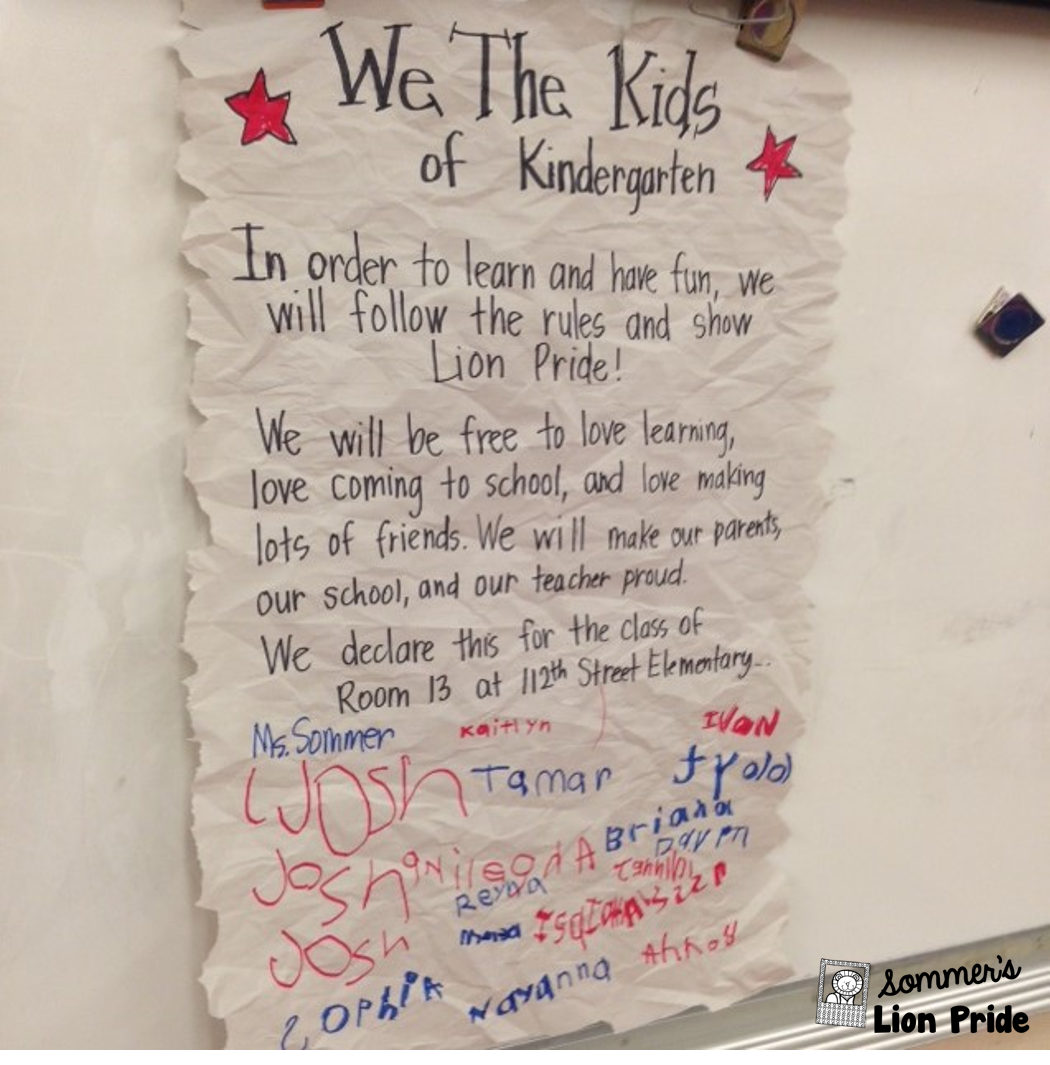 We The Kids
of Kindergarten
In order to learn and have fun, we
will follow the rules and show
Lion Pride!
We will be free to love learning,
love coming to school, and love making
lots of friends. We will make our parents,
our school, and our teacher proud.
We declare this for the class of
Room 13 at 112th Street Elementary...
Ms. Sommer Kaitlyn IVaN
Josh Tamar
Briana
Josh
Reyna
Josh
Nayanna
Sommer's
Lion Pride